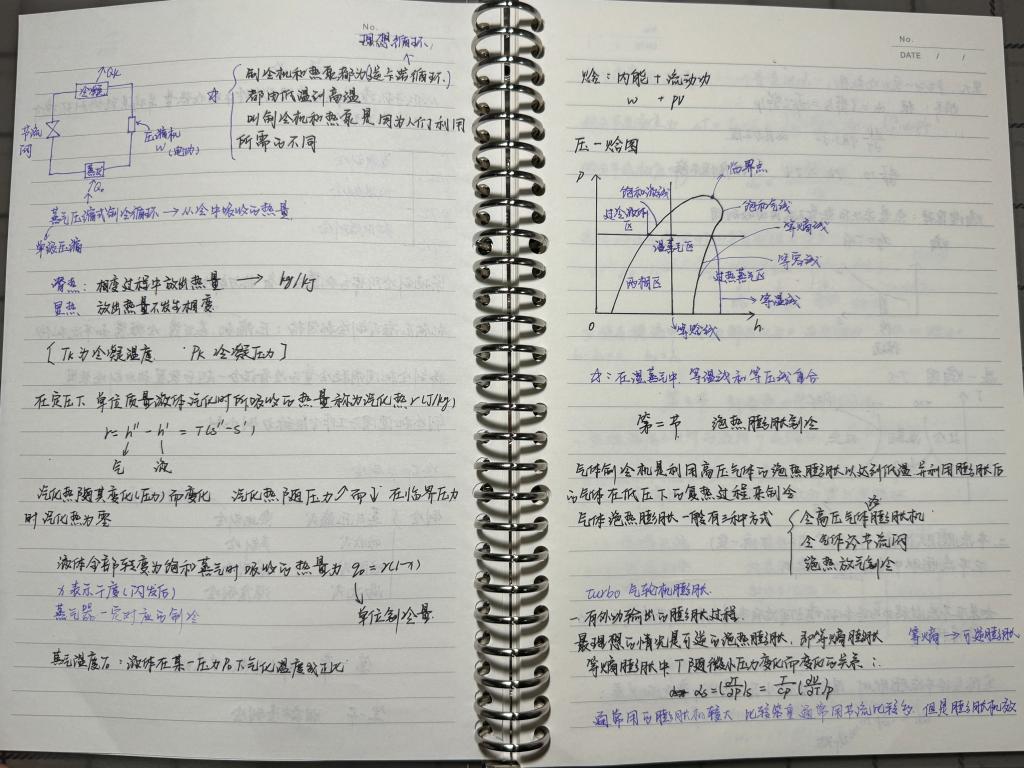 No.
理想循环
Qk
冷凝
节流
阀
压缩机
W(电功)
蒸发
Q。
蒸气压缩式制冷循环→从冷中吸收的热量
单级压缩
制冷机和热泵都为(逆卡诺循环)
都由低温到高温
叫制冷机和热泵是因为人们利用
所需的不同
潜热：相变过程中放出热量 → kg/kJ
显热 放出热量不发生相变
[Tk为冷凝温度 Pk冷凝压力]
在定压下 单位质量液体汽化时所吸收的热量称为汽化热r(J/kg)
r=h''-h'=T(s''-s')
气 液
汽化热随其变化(压力)而变化 汽化热随压力↑而↓ 在临界压力
时汽化热为零
液体全部转变为饱和蒸气时吸收的热量为 q₀=r(1-x)
x表示干度(闪发后)
单位制冷量
蒸气器一定对应的制冷
蒸气温度T₀：液体在某一压力P₀下气化温度或正比
No.
DATE / /
焓：内能+流动功
w + pv
压-焓图
P
临界点
饱和液线
过冷液体
区
饱和气线
等熵线
湿蒸气区
等容线
过热蒸气区
两相区
等温线
0
h
等焓线
*：在湿蒸气中 等温线和等压线重合
第二节 绝热膨胀制冷
气体制冷机是利用高压气体的绝热膨胀以达到低温并利用膨胀后
的气体在低压下的复热过程来制冷
气体绝热膨胀一般有三种方式
令高压气体膨胀机
令气体经节流阀
绝热放气制冷
turbo 气轮机膨胀
一.有外功输出的膨胀过程.
最理想的情况是可逆的绝热膨胀，即等熵膨胀 等熵→可逆膨胀
等熵膨胀中T随微小压力变化而变化的关系：
αs=(∂T/∂p)s = T/cp (∂v/∂T)p
通常用的膨胀机较大 比较笨重 通常用节流比较多 但是膨胀机效